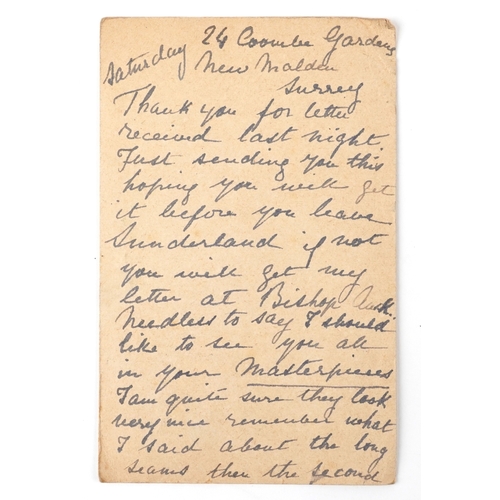 24 Coombe Gardens
Saturday New Malden
Surrey
Thank you for letter
received last night.
Just sending you this
hoping you will get
it before you leave
Sunderland if not
you will get my
letter at Bishop Auck.
Needless to say I should
like to see you all
in your Masterpieces
I am quite sure they look
very nice remember what
I said about the long
seams then the second